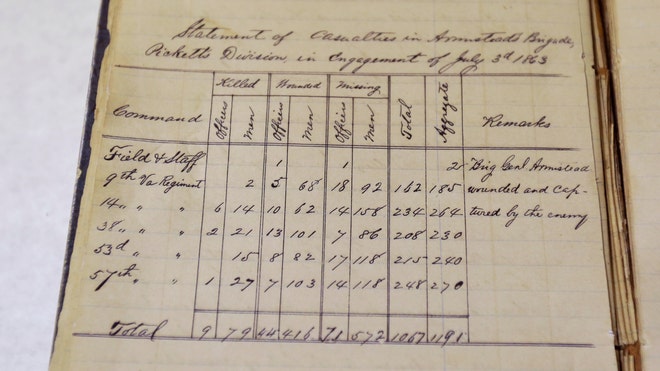 Statement of Casualties in Armistead's Brigade,
Pickett's Division, in Engagement of July 3rd 1863
Killed Wounded Missing
Command Officers Men Officers Men Officers Men Total Aggregate Remarks
Field & Staff 1 1 2 Brig Genl Armistead
9th Va Regiment 2 5 68 18 92 162 185 wounded and cap-
14 " " " 6 14 10 62 14 158 234 264 tured by the enemy
38 " " " 2 21 13 101 7 86 208 230
53d " " 15 8 82 17 118 215 240
57th " " 1 27 7 103 14 118 248 270
Total 9 79 44 416 71 572 1067 1191